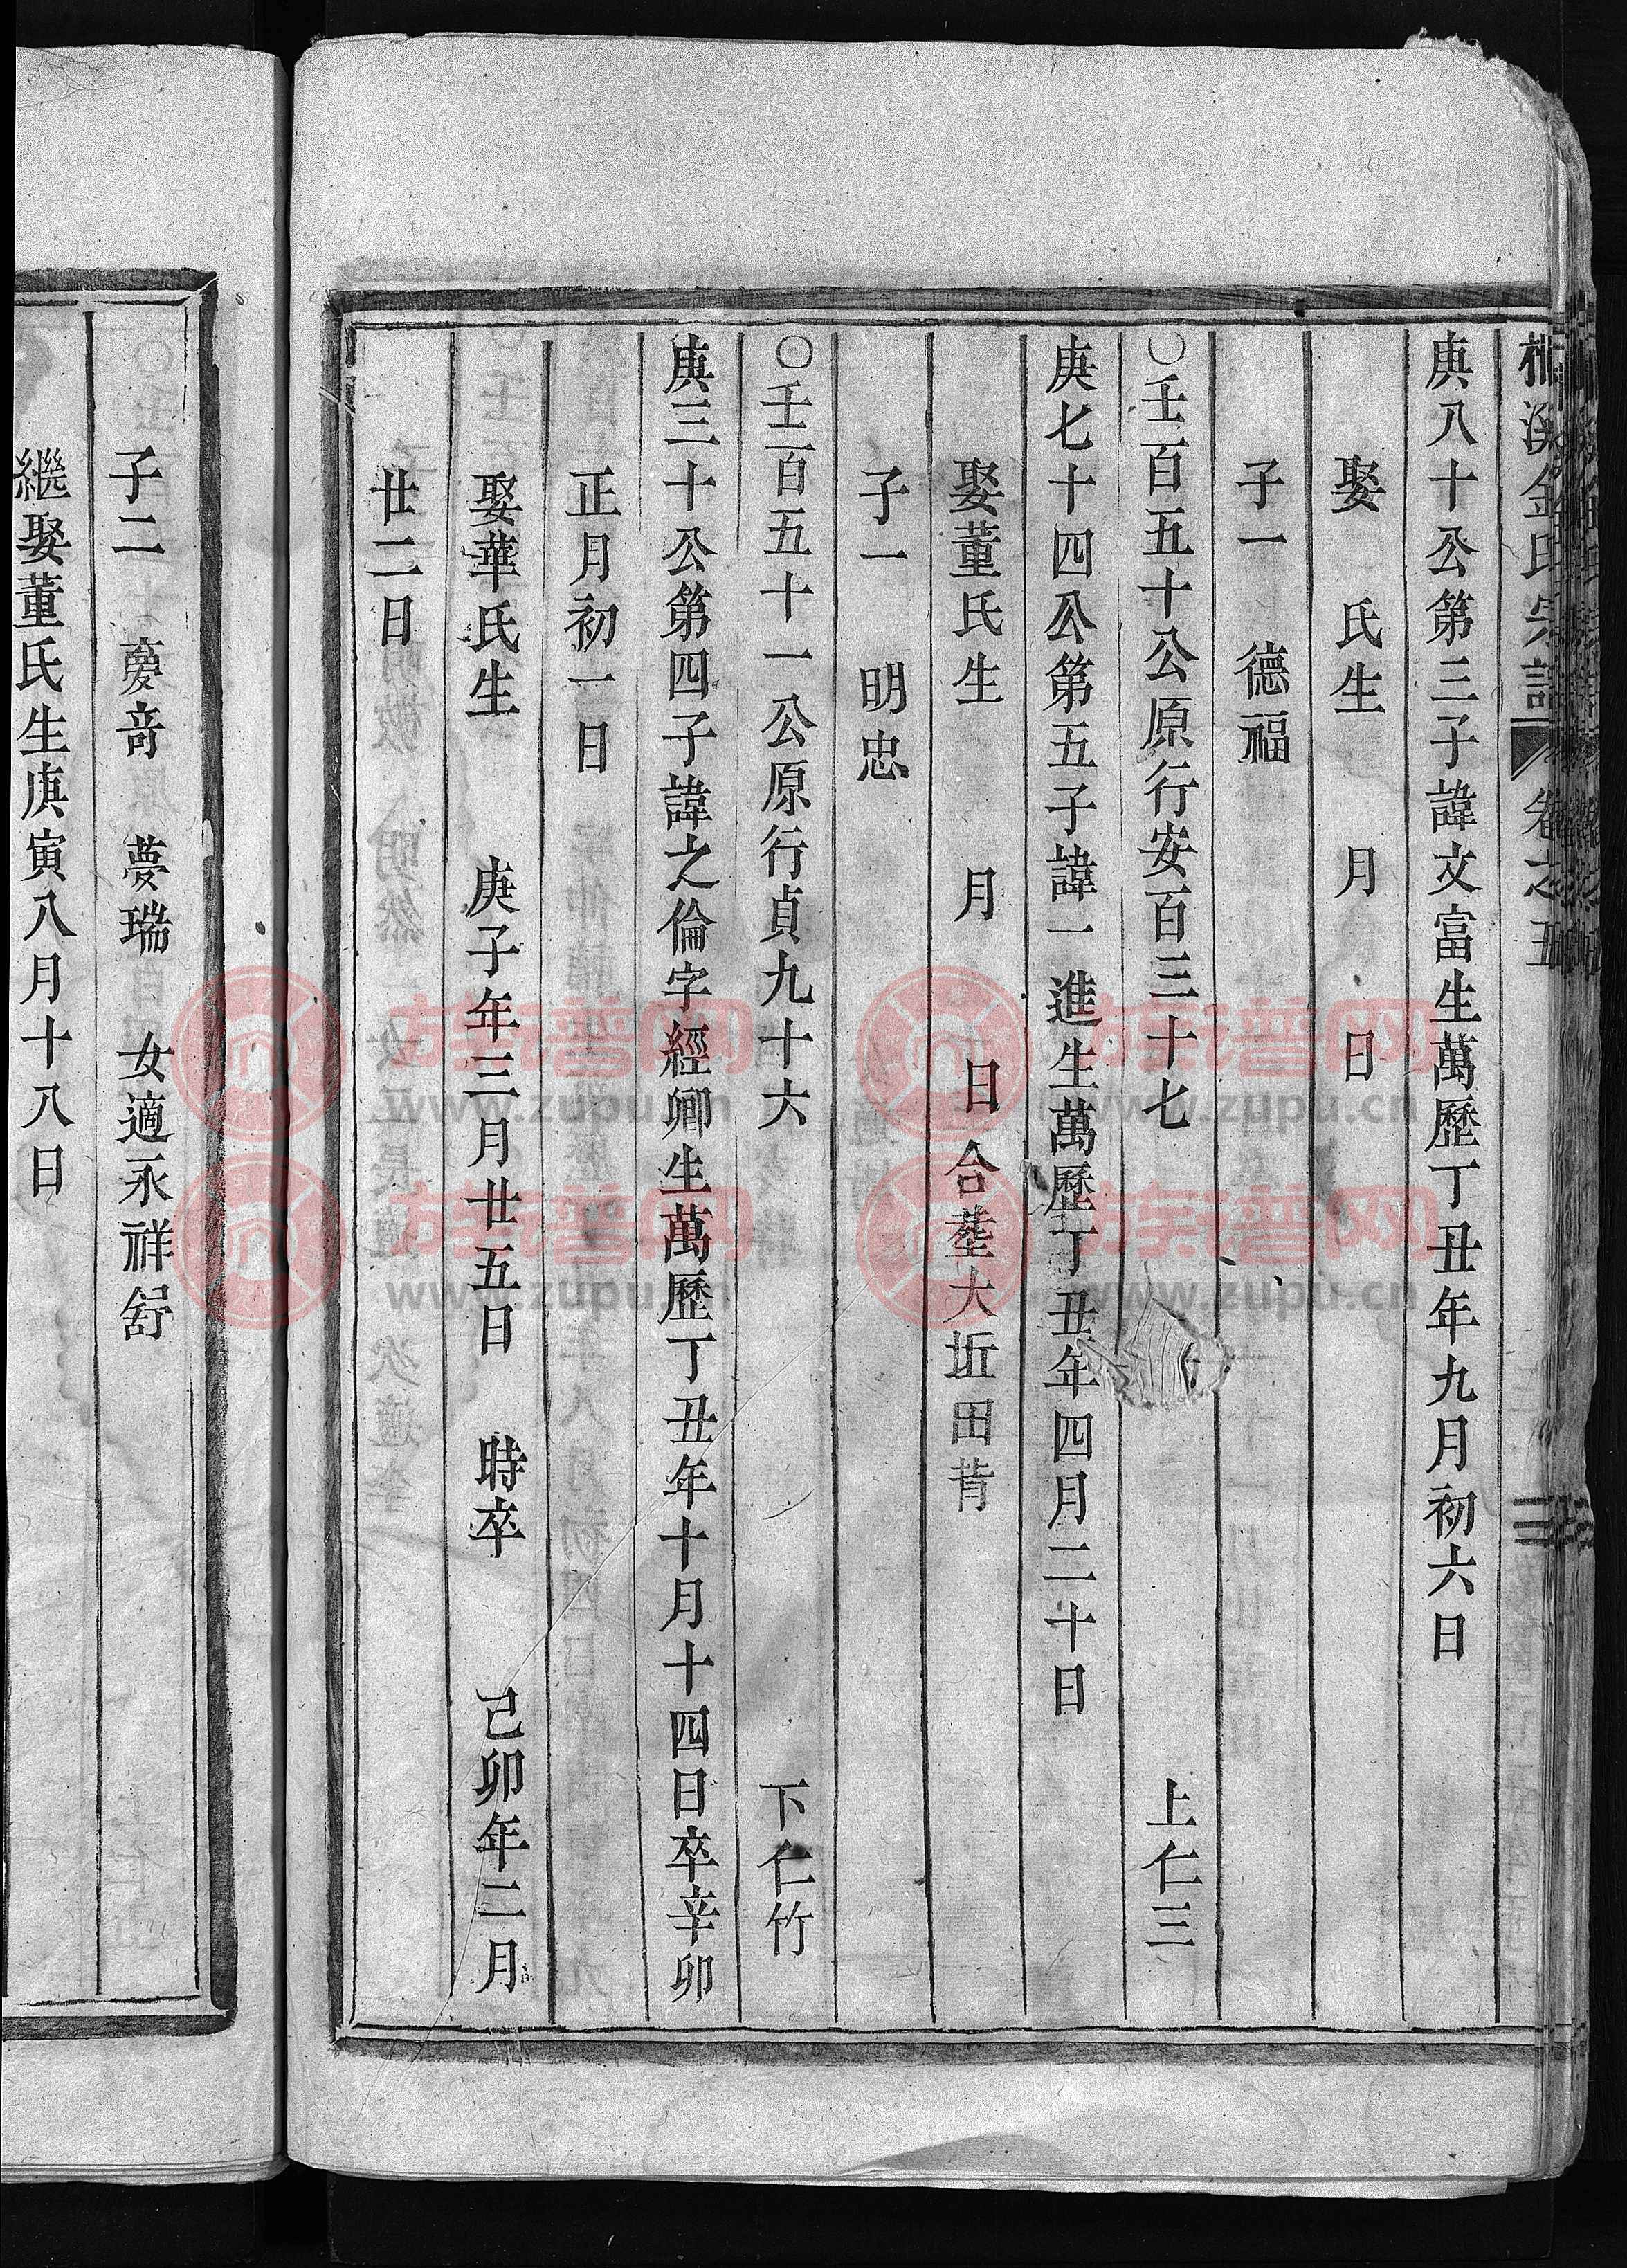 溪金氏宗譜 卷之五
庚八十公第三子諱文富生萬歷丁丑年九月初六日
娶 氏生 月 日
子一 德福
○壬百五十公原行安百三十七 上仁三
庚七十四公第五子諱一進生萬歷丁丑年四月二十日
娶董氏生 月 日合塟大坵田背
子一 明忠
○壬百五十一公原行貞九十六 下仁竹
庚三十公第四子諱之倫字經卿生萬歷丁丑年十月十四日卒辛卯
正月初一日
娶華氏生 庚子年三月廿五日 時卒 己卯年二月
廿二日
子二 夢奇 夢瑞 女適永祥舒
繼娶董氏生庚寅八月十八日
古籍普网
www.zupu.cn
古籍普网
www.zupu.cn
古籍普网
www.zupu.cn
古籍普网
www.zupu.cn